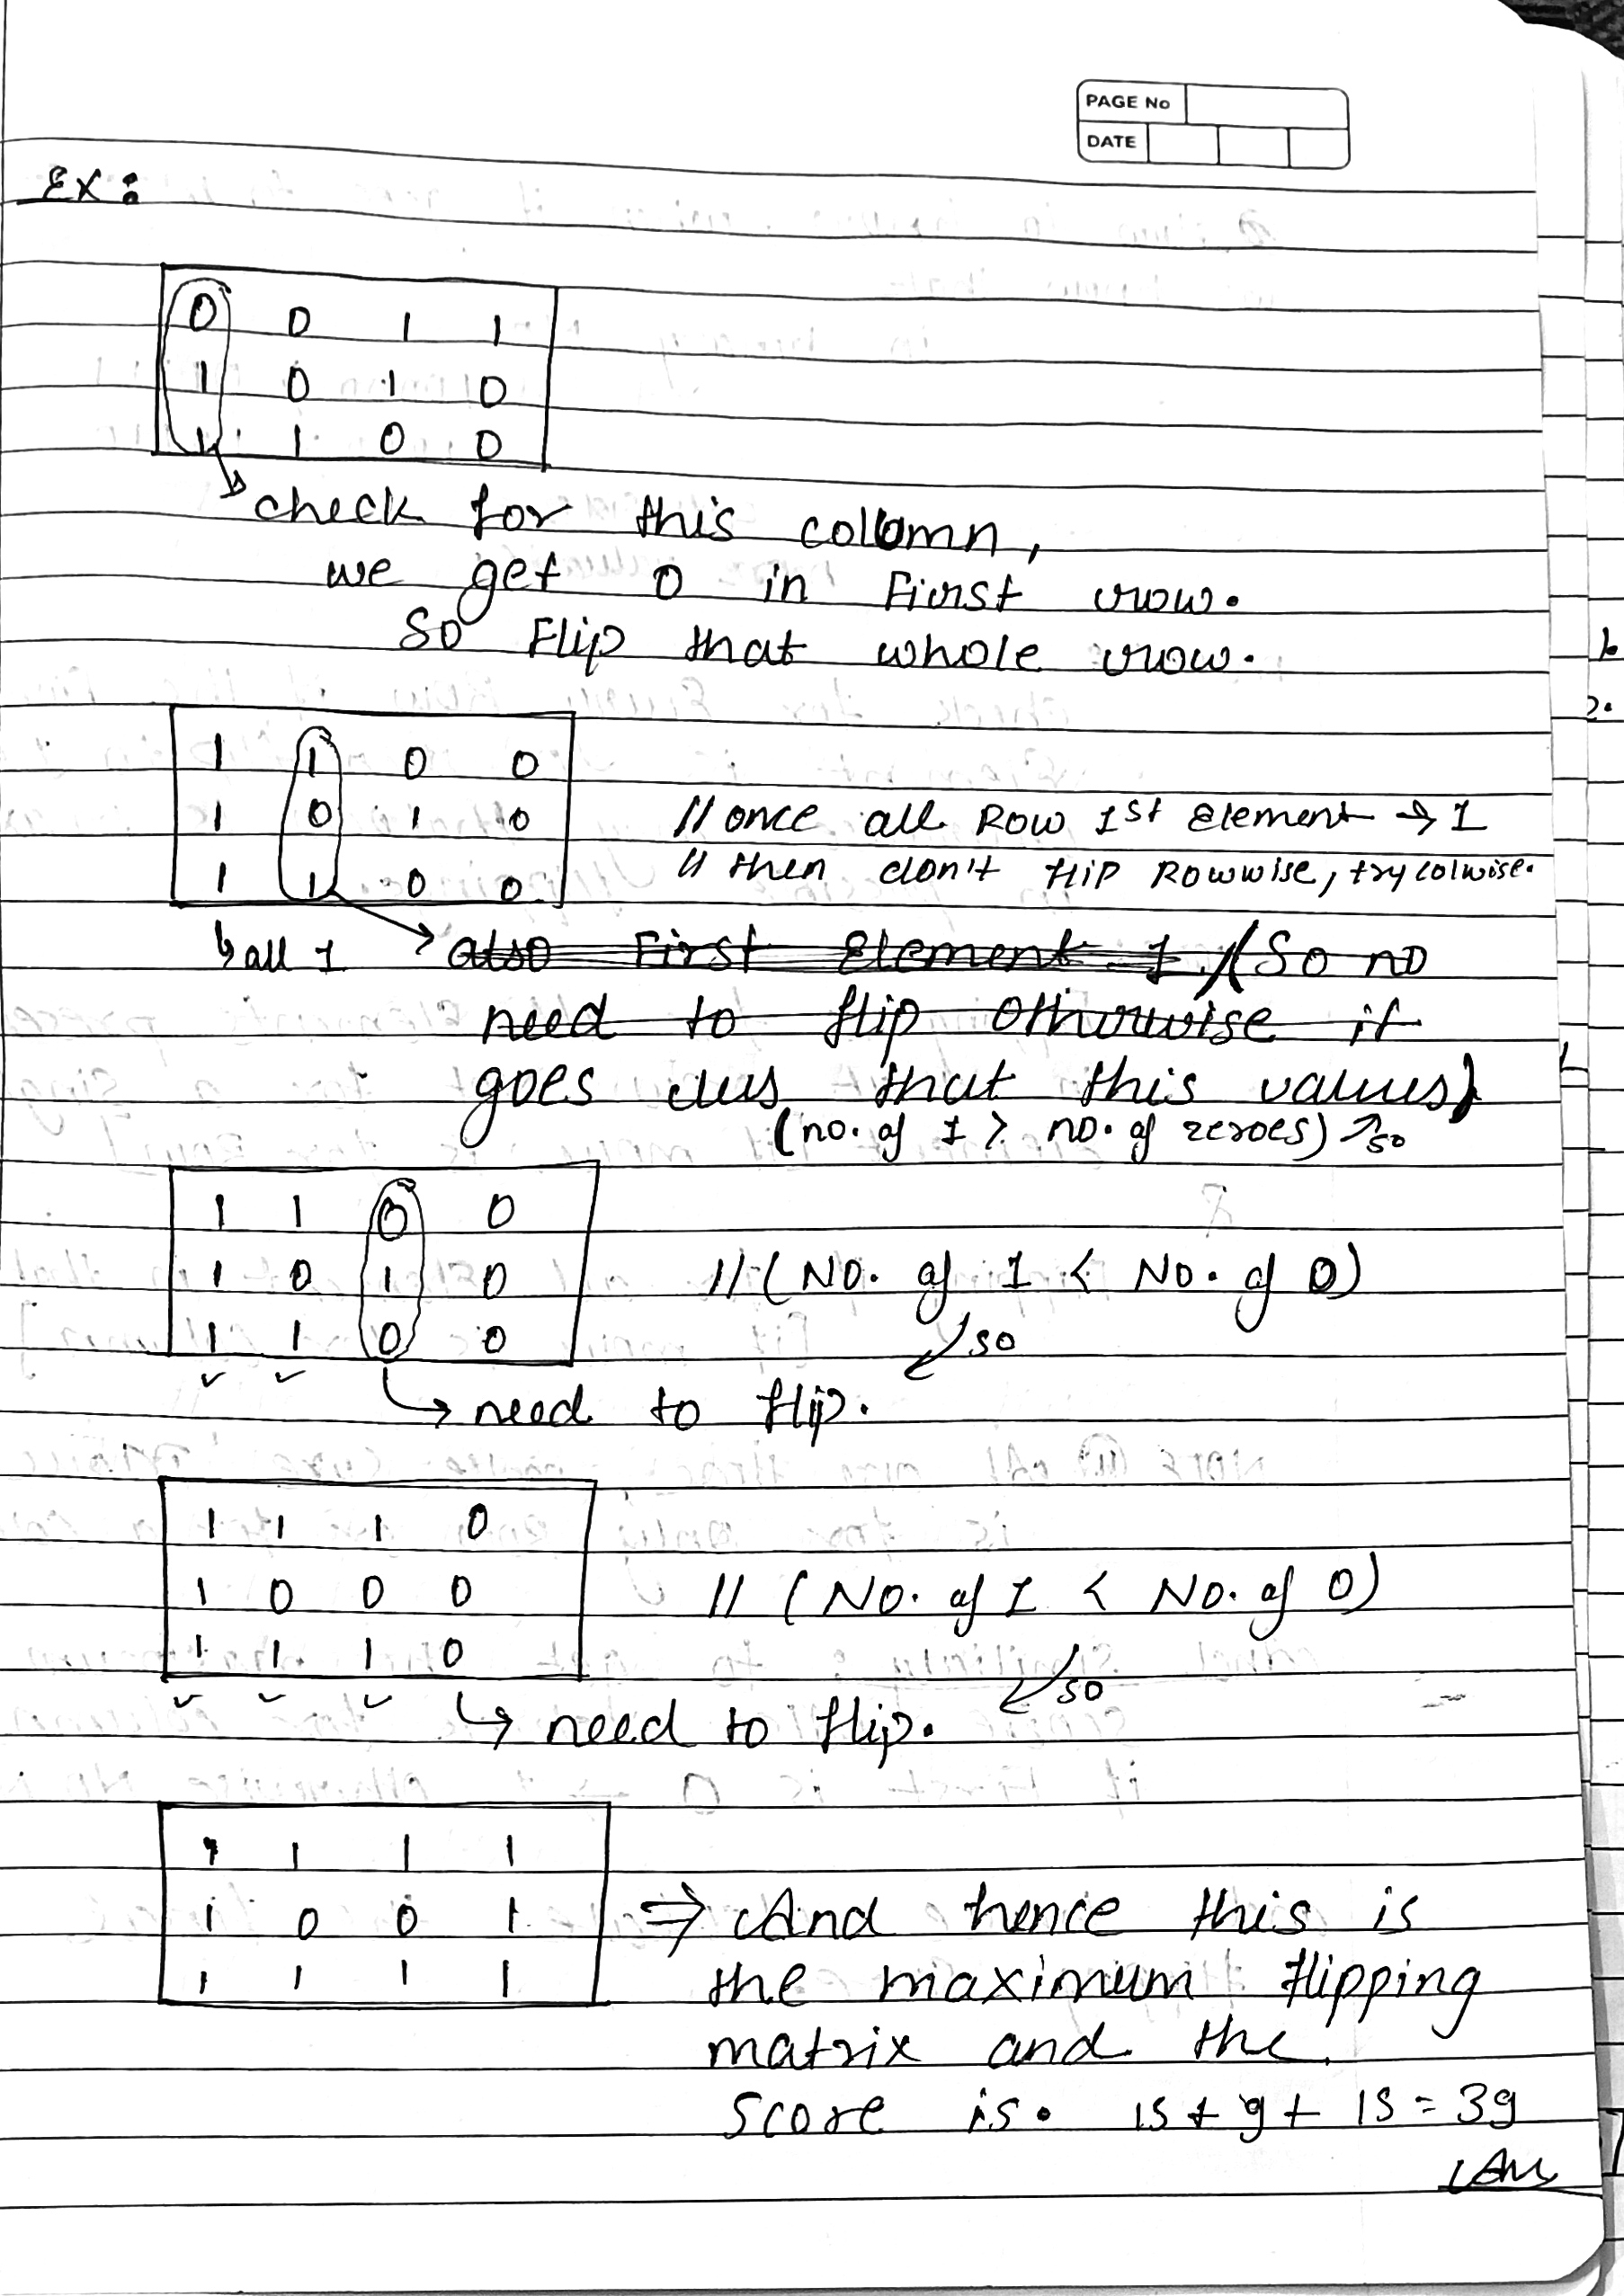 PAGE No
DATE
EX:
0 0 1 1
1 0 1 0
1 1 0 0
check for this column,
we get 0 in First row.
So Flip that whole row.
1 1 0 0
1 0 1 0 // once all Row 1st Element → 1
1 1 0 0 // then don't flip Rowwise, try colwise.
all 1 → also First Element 1 / (So no
need to flip otherwise it
goes less that this values)
(no. of 1 > no. of zeroes) so
1 1 0 0
1 0 1 0 // (No. of 1 < No. of 0)
1 1 0 0 so
→ need to flip.
1 1 1 0
1 0 0 0 // (No. of 1 < No. of 0)
1 1 1 0 so
→ need to flip.
1 1 1 1
1 0 0 1 ⇒ And hence this is
1 1 1 1 the maximum flipping
matrix and the
score is. 15 + 9 + 15 = 39
Ans